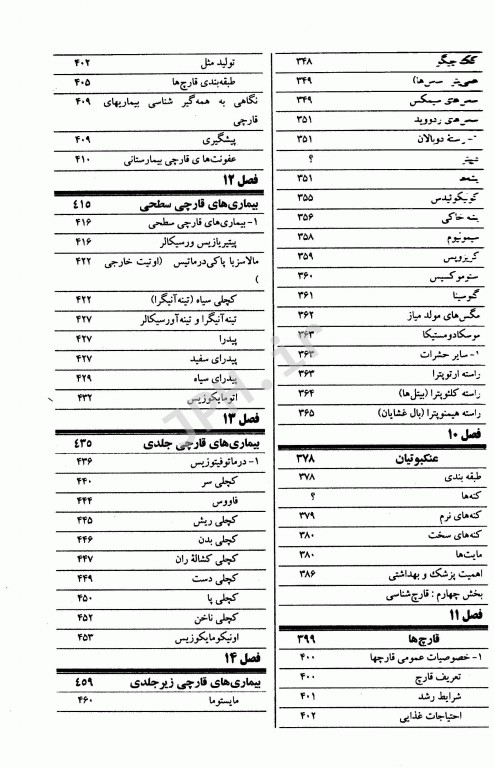 کک جیگر ۳۴۸
همی‌پترا (سس‌ها) ۳۴۹
سس‌های سیمکس ۳۴۹
سس‌های ردووید ۳۵۱
راستهٔ دوبالان ۳۵۱
دیپترا ؟
پشه‌ها ۳۵۱
کولیکوئیدس ۳۵۵
پشه خاکی ۳۵۶
سیمولیوم ۳۵۸
کریزوپس ۳۵۹
ستوموکسیس ۳۶۰
گلوسینا ۳۶۱
مگس‌های مولد میاز ۳۶۲
موسکادومستیکا ۳۶۳
۱- سایر حشرات ۳۶۳
راسته ارتوپترا ۳۶۳
راسته کلئوپترا (بیتل‌ها) ۳۶۴
راسته هیمنوپترا (بال غشایان) ۳۶۵
فصل ۱۰
عنکبوتیان ۳۷۸
طبقه بندی ۳۷۸
کنه‌ها ؟
کنه‌های نرم ۳۷۹
کنه‌های سخت ۳۸۰
مایت‌ها ۳۸۰
اهمیت پزشکی و بهداشتی ۳۸۶
بخش چهارم : قارچ‌شناسی
فصل ۱۱
قارچ‌ها ۳۹۹
۱- خصوصیات عمومی قارچها ۴۰۰
تعریف قارچ ۴۰۰
شرایط رشد ۴۰۱
احتیاجات غذایی ۴۰۲
تولید مثل ۴۰۲
طبقه‌بندی قارچ‌ها ۴۰۵
نگاهی به همه‌گیر شناسی بیماریهای ۴۰۹
قارچی
پیشگیری ۴۰۹
عفونت‌ها ی قارچی بیمارستانی ۴۱۰
فصل ۱۲
بیماری‌های قارچی سطحی ۴۱۵
۱- بیماری‌های قارچی سطحی ۴۱۶
پیتیریازیس ورسیکالر ۴۱۶
مالاسزیا پاکی‌درماتیس (اوتیت خارجی ۴۲۲
)
کچلی سیاه (تینه‌آنیگرا) ۴۲۲
تینه‌آنیگرا و تینه‌آورسیکالر ۴۲۷
پیدرا ۴۲۷
پیدرای سفید ۴۲۷
پیدرای سیاه ۴۲۹
اتومایکوزیس ۴۳۲
فصل ۱۳
بیماری‌های قارچی جلدی ۴۳۵
۱- درماتوفیتوزیس ۴۳۶
کچلی سر ۴۴۰
فاووس ۴۴۴
کچلی ریش ۴۴۵
کچلی بدن ۴۴۶
کچلی کشالهٔ ران ۴۴۷
کچلی دست ۴۴۹
کچلی پا ۴۵۰
کچلی ناخن ۴۵۲
اونیکومایکوزیس ۴۵۳
فصل ۱۴
بیماری‌های قارچی زیرجلدی ۴۵۹
مایستوما ۴۶۰